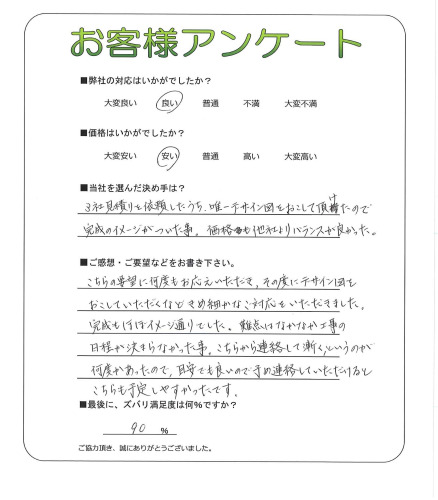 お客様アンケート
■弊社の対応はいかがでしたか？
大変良い 良い 普通 不満 大変不満
■価格はいかがでしたか？
大変安い 安い 普通 高い 大変高い
■当社を選んだ決め手は？
3社見積りを依頼したうち、唯一デザイン図をおこして頂けたので
完成のイメージがついた事。価格も他社よりバランスが良かった。
■ご感想・ご要望などをお書き下さい。
こちらの要望に何度もお応えいただき、その度にデザイン図を
おこしていただくなどきめ細かなご対応をいただきました。
完成もほぼイメージ通りでした。難点はなかなか工事の
日程が決まらなかった事。こちらから連絡して漸く、というのが
何度かあったので、目安でも良いので予め連絡していただけると
こちらも予定しやすかったです。
■最後に、ズバリ満足度は何％ですか？
90 ％
ご協力頂き、誠にありがとうございました。